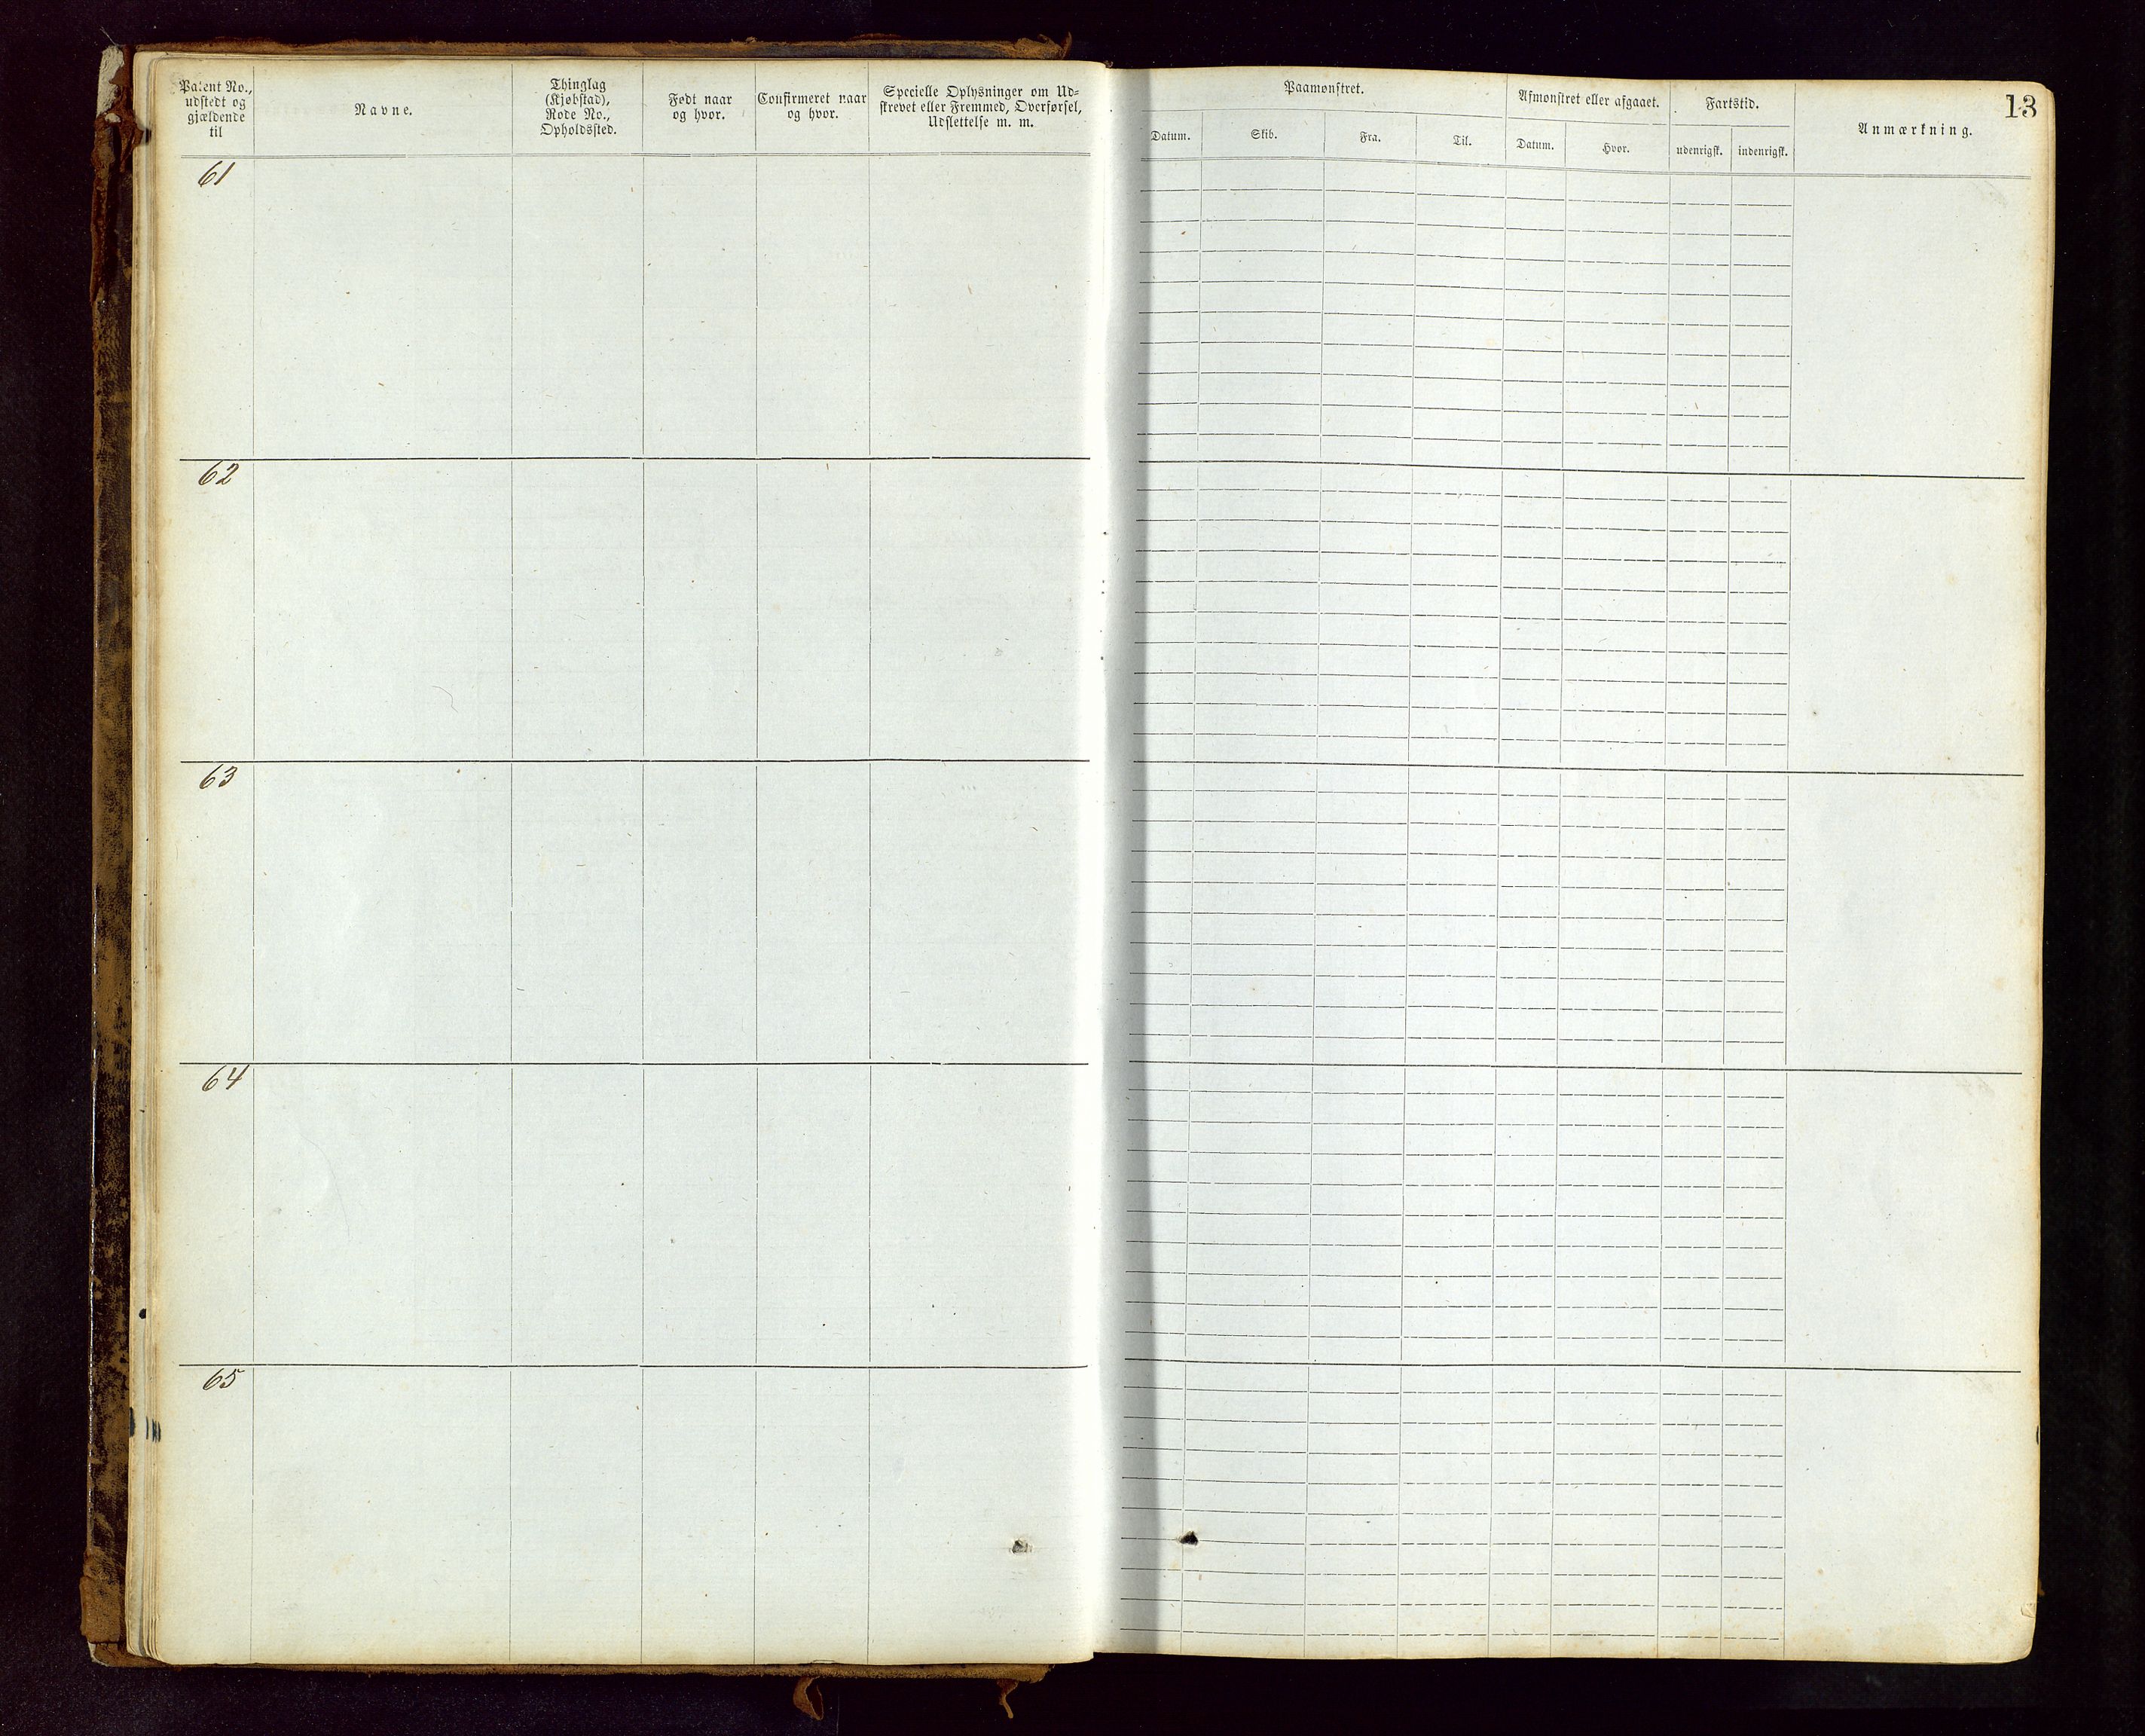 Patent No.,
udstedt og
gjældende
til
Navne.
Thinglag
(Kjøbstad),
Rode No.,
Opholdssted.
Født naar
og hvor.
Confirmeret naar
og hvor.
Specielle Oplysninger om Ud-
skrevet eller Fremmed, Overførsel,
Udslettelse m. m.
61
62
63
64
65
13
Paamønstret.
Afmønstret eller afgaaet.
Fartstid.
Anmærkning.
Datum.
Skib.
Fra.
Til.
Datum.
Hvor.
udenrigsk.
indenrigsk.